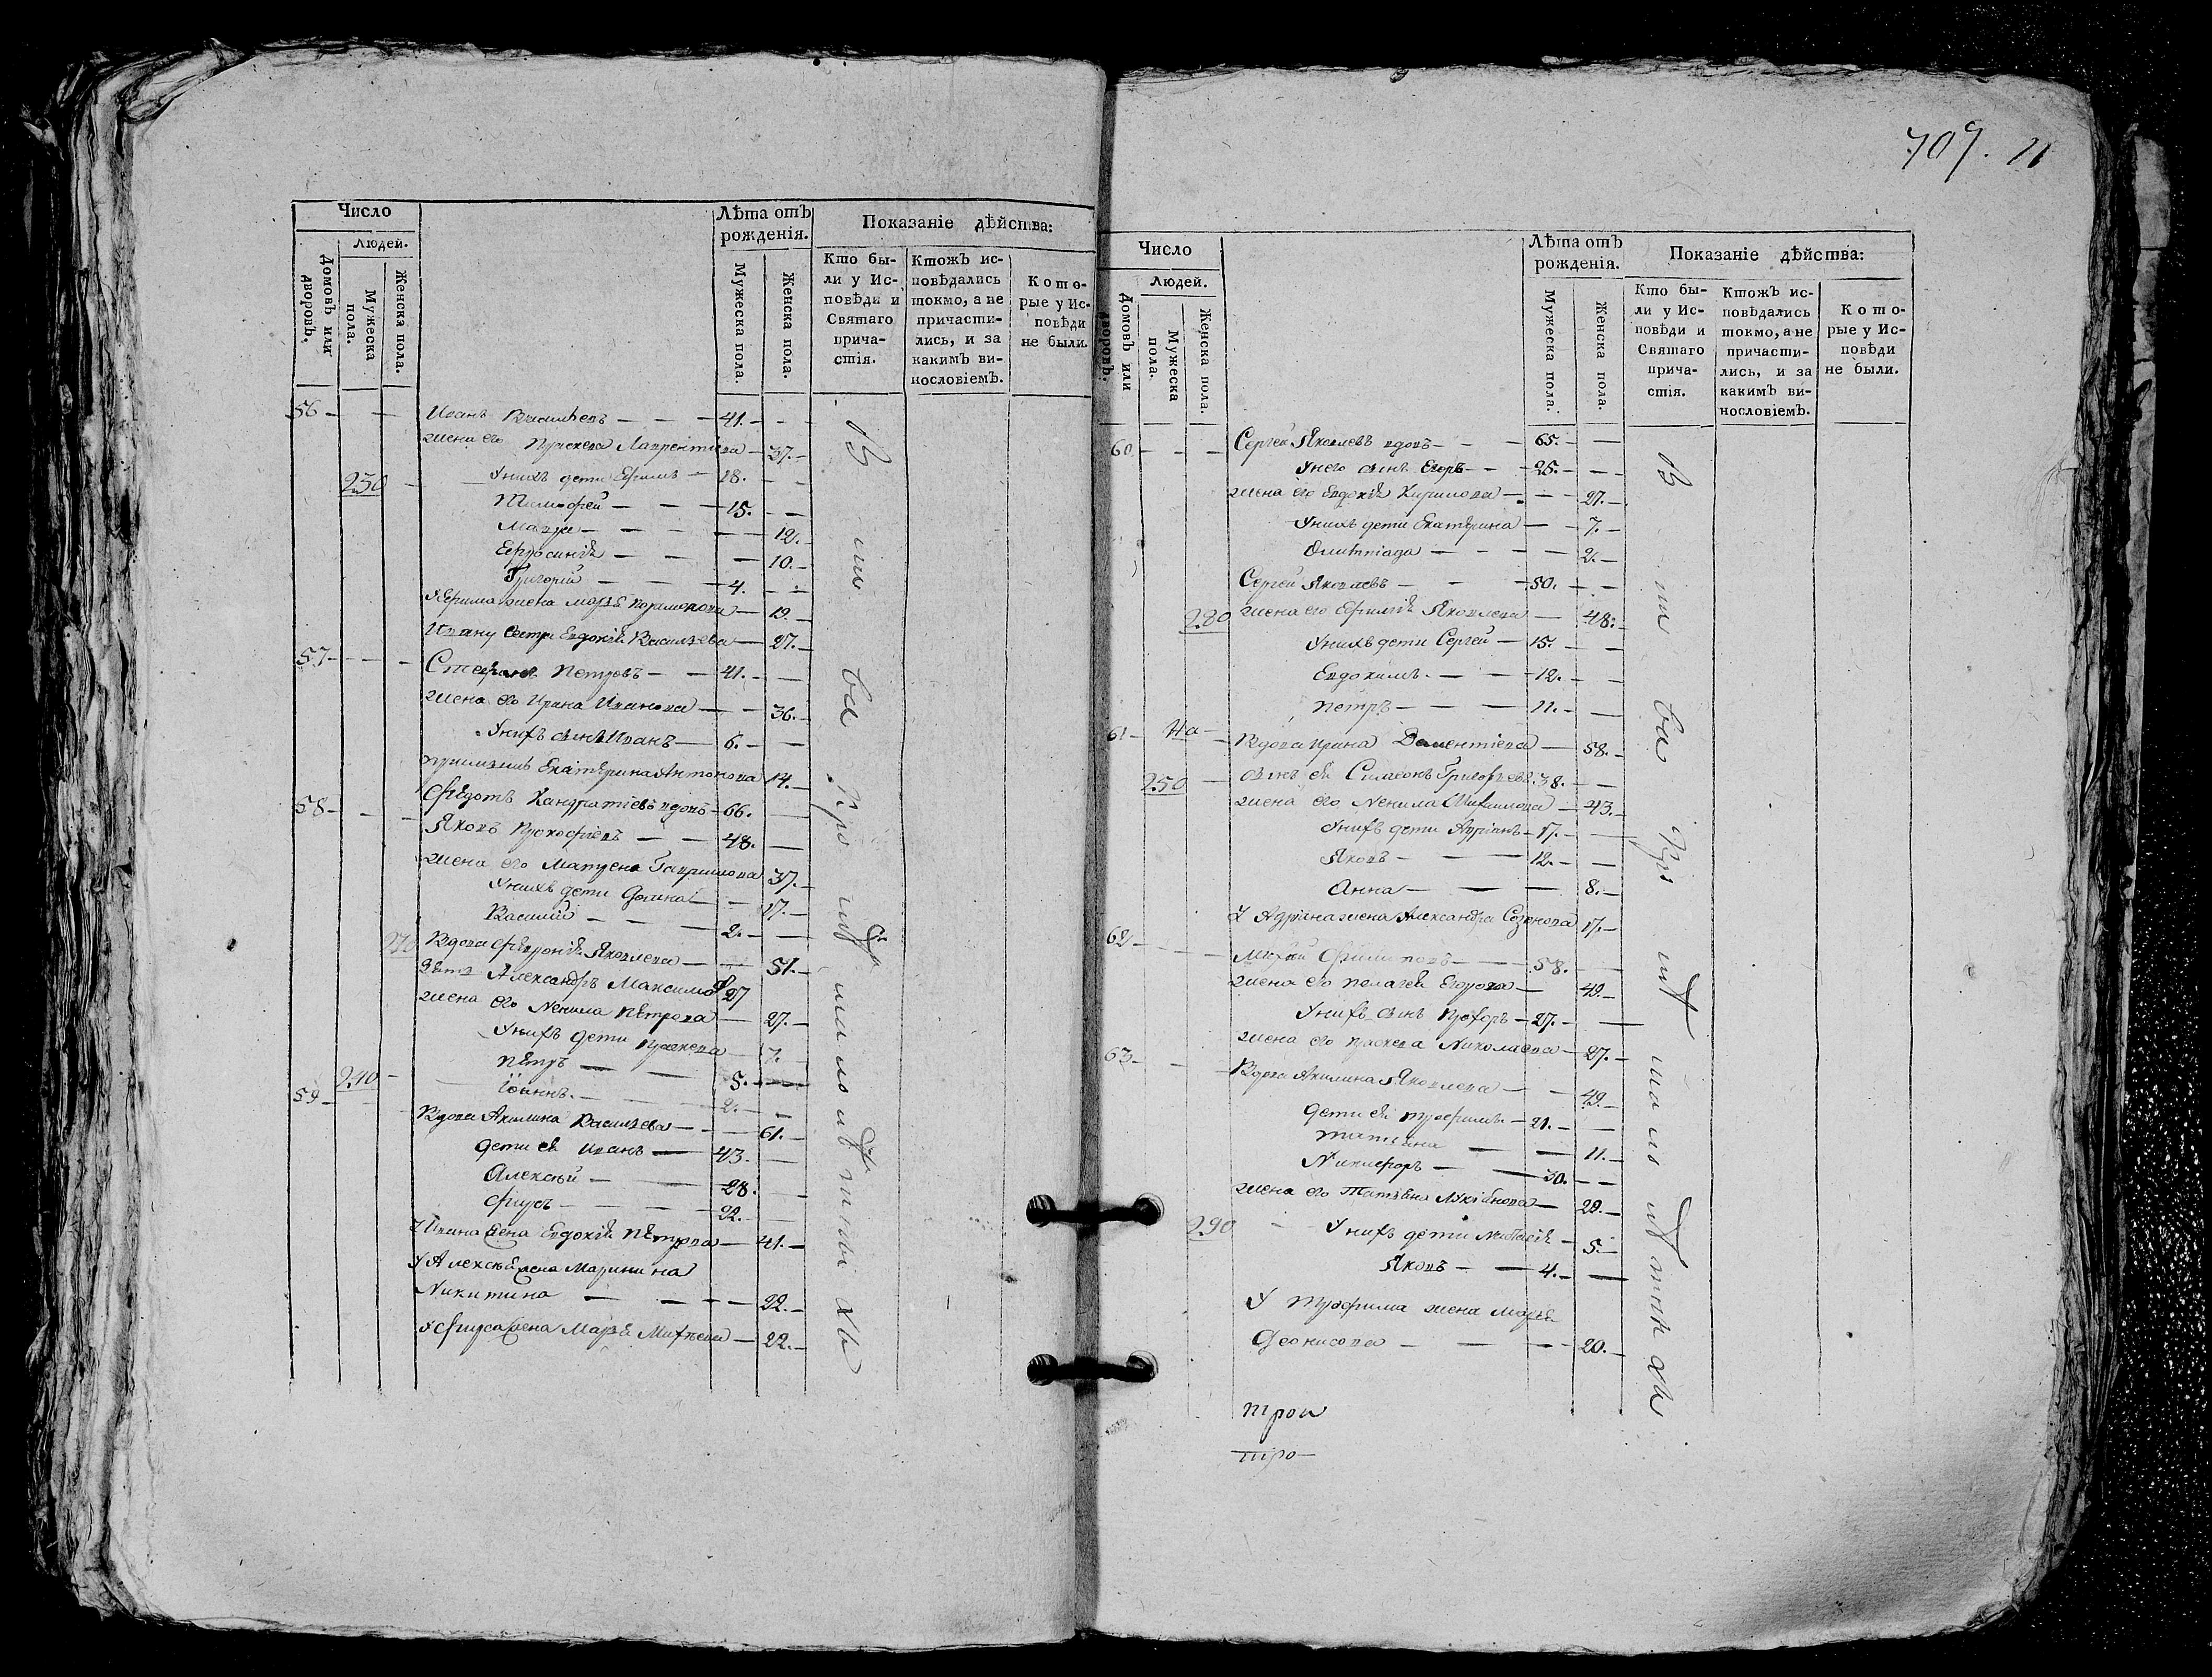 Число
Людей.
Домовъ или дворовъ.
Мужеска пола.
Женскя пола.
Лѣта отъ рожденія.
Мужеска пола.
Женска пола.
Показаніе дѣйства:
Кто были у Исповѣди и Святаго причастія.
Ктожъ исповѣдались токмо, а не причастились, и за какимъ винословіемъ.
Которые у Исповѣди не были.
56 — Иванъ Васильевъ — 41. —
жена его Праскева Лаврентиева — 37. —
250 — Унихъ дети Ефимъ — 18. —
Тимофей — 15. —
Мавра — 12. —
Ефросинія — 10. —
Григорий — 4. —
УЕфима жена Марья — 19. —
Ивану сестра Евдокія Васильева — 27. —
57 — Стефанъ Петровъ — 41. —
жена его Ирина Иванова — 36. —
Унихъ сынъ Иванъ — 6. —
Екатерина Антонова 14. —
58 — Федотъ Кандратіевъ вдовъ — 66. —
Яковъ Прокофіевъ — 48. —
жена его Матрена Гаврилова 37. —
Унихъ дети — 17. —
Василий — 2. —
270 Вдова Февронія Яковлева — 51. —
Александръ Максимовъ 27
жена его Ненила Петрова — 27. —
Унихъ дети Праскева — 7. —
Петръ — 5. —
240 — Іоаннъ. — 2. —
59 — Вдова Акилина Васильева — 61. —
дети ея Иванъ — 43. —
Алексѣй — 28. —
Фирсъ — 22. —
У Ивана жена Евдокія Петрова — 41. —
У Алексѣя жена Марина
Никитина — 22. —
У Фирса жена Марья Михеева — 22. —
709. 11
Число
Людей.
Домовъ или дворовъ.
Мужеска пола.
Женска пола.
Лѣта отъ рожденія.
Мужеска пола.
Женска пола.
Показаніе дѣйства:
Кто были у Исповѣди и Святаго причастія.
Ктожъ исповѣдались токмо, а не причастились, и за какимъ винословіемъ.
Которые у Исповѣди не были.
60 — Сергей Яковлевъ вдовъ — 65. —
Унего сынъ Егоръ — 25. —
жена его Евдокія Кирилова — 27. —
Унихъ дети Екатерина — 7. —
Олимпіада — 2. —
Сергей Яковлевъ — 50. —
280 жена его Ефимія Яковлева — 48. —
Унихъ дети Сергей — 15. —
Евдокимъ. — 12. —
Петръ — 11. —
61 — Вдова Ирина Дементиева — 58. —
250 — сынъ ея Симеонъ Григорьевъ. 38. —
жена его Ненила Михаилова — 43. —
Унихъ дети Адріанъ — 17. —
Яковъ — 12. —
Анна — 8. —
У Адріана жена Александра Созонова 17. —
62 — Филиповъ — 58. —
жена его Пелагея Егорова — 49. —
Унихъ сынъ Прохоръ — 27. —
жена его Праскева Николаева — 27. —
63 — Вдова Акилина Яковлева — 49. —
дети ея Трофимъ — 21. —
Татияна — 11. —
Никифоръ — 30. —
жена его Татияна Лукіанова — 29. —
290 — Унихъ дети — 5. —
Яковъ — 4. —
У Трофима жена Марья
Деонисова — 20. —
трои
тро —